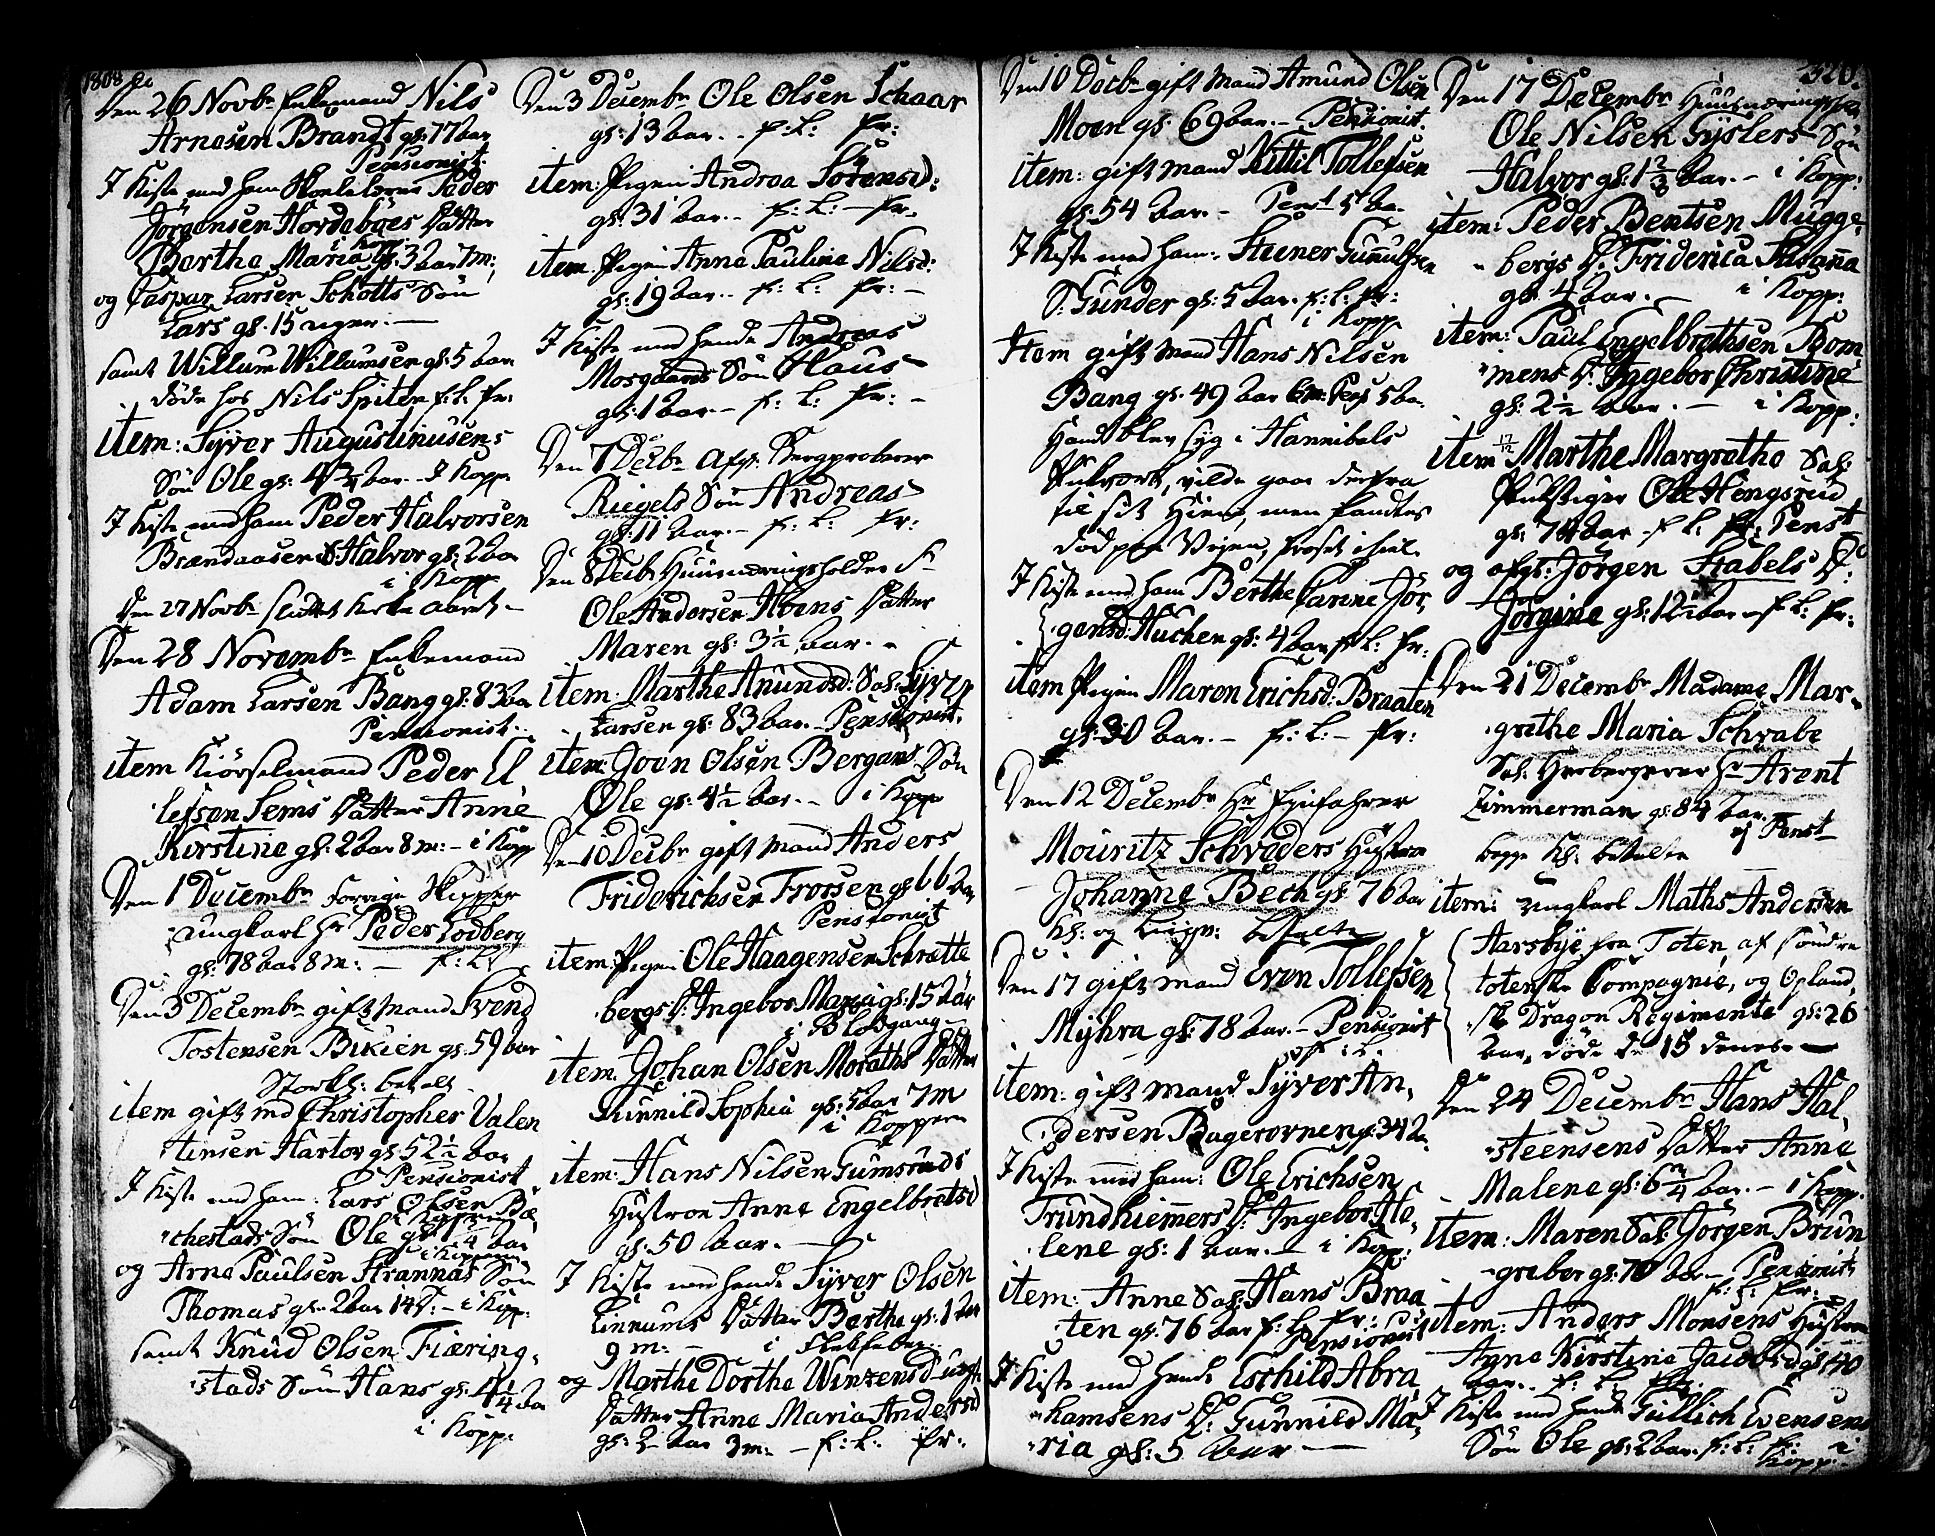 1808
Den 26 Novbr Enkemand Nils
Arnesen Brandt gl: 77 aar
Pensionist.
I Kiste med ham Skoelelærer Peder
Jörgensen Hordeböes Datter
Berthe Maria gl. 3 aar 7m:
i Kopp:
og Caspar Larsen Schotts Sön
Lars gl. 15 uger. —
samt Willum Willumsen gl. 5 aar
döde hos Nils Spiten f: L: Pr:
item: Syver Augustinusens
Sön Ole gl: 4 3/4 aar. I Kopp
I Kiste med ham Peder Halvorsen
Brændaasen S. Halvor gl: 2 aar
i Kopp
Den 27 Novbr sluttet Kirke Aaret
Den 28 Novembr Enkemand
Adam Larsen Bang gl: 83 aar
Pensionist.
item Kiörselmand Peder El
lefsen Sems Datter Anne
Kirstine gl: 2 aar 8 m: — i Kopp
319
Den 1 Decembr forrige Skipper
ungkarl Hr Peder Lodberg
gl: 78 aar 8 m: — f: L:
Den 3 Decembr gift Mand Svend
Tostensen Bikien gl: 59 aar
Storkl: betalt
item gift md Christopher Valen
tinsen Hartov gl: 52 1/2 aar
Pensionist
I Kiste med ham: Lars Olsen Bæ
chestads Sön Ole gl: 1 1/4 aar
i Koppene
og Arne Paulsen Strannæs Sön
Thomas gl: 2 aar 14 D: — i Kopp:
samt Knud Olsen Fiæring-
stads Sön Hans gl: 4 1/4 aar
i Kopp.
Den 3 Decembr Ole Olsen Schaar
gl: 13 aar. — f: L: Pr:
item: Pigen Andrea Sörensd:
gl: 31 aar. — f: L: — Pr.
item. Pigen Anne Pauline Nilsd:
gl: 19 aar. f: L: Pr: —
I Kiste med hende Andreas
Mosgaards Sön Claus
gl: 1 aar. — f: L: Pr: —
Den 7 Decbr Afg: Bergproberer
Riegels Sön Andreas
gl: 11 aar. — f: L: Pr:
Den 8 Decbr Huusnæringsholder
Ole Andersen Hoens Datter
Maren gl: 3 1/2 aar.
item: Marthe Anundsd: Sal: Syver
Larsen gl: 83 aar. Pensionist.
item: Joen Olsen Bergans Sön
Ole gl: 4 1/2 aar. — i Kopp
Den 10 Decbr gift Mand Anders
Friderichsen Frorsen gl 66 aar
Pensionist
item: Pigen Ole Haagensen Schrette
bergs D: Ingebor Maria gl: 15 aar
i Blodgang
item: Johan Olsen Moraths Datter
Gunnild Sophia gl: 5 aar 7 m
i Koppene
item: Hans Nilsen Gumsruds
Hustroe Anne Engelbretsd
gl: 50 aar. —
I Kiste med hende Syver Olsen
Linnums Datter Berthe gl: 1 aar
9 m: — i Flekfeber
og Marthe Dorthe Winzens
Datter Anne Maria Andersd
gl: 2 aar 3 m: — f: L: Pr:
Den 10 Decbr gift Mand Amund Olsen
Moen gl: 69 aar. — Pensionist.
item: gift mand Kittil Tollefsen
gl: 54 aar — Penst 5 ba
I Kiste med ham: Steener Gunnulfsen
S: Gunder gl: 5 aar. f: L: Pr:
i Kopp
Item gift Mand Hans Nilsen
Bang gl. 49 aar 6 m: Pens 5 ba.
Hand blev syg i Hannibals
Pukværk, vilde gaae derfra
til sit Hiem, men fandtes
död paa Vejen, frosset ihiel.
I Kiste med ham Berthe Carine Jör
gensd: Huchen gl: 4 aar f: L: Pr:
item Pigen Maren Erichsd: Braaten
gl: 30 aar. — f: L: — Pr:
Den 12 Decembr Hr Fyrfahrer
Mouritz Schröders Hustroe
Johanne Bech gl: 76 aar
Kl: og Lugn: betalte
Den 17 gift mand Even Tollefsen
Myhra gl: 78 aar. — Pensionist
f: L:
item: gift mand Syver An-
dersen Bagerovnen gl: 34 aar
I Kiste med ham: Ole Erichsen
Trundhiemmers D: Ingebor He-
lene gl: 1 aar. — i Kopp:
item: Anne Sal: Hans Braa
ten gl: 76 aar f: L: Pr:
Pensionist
I Kiste med hende Eschild Abra
hamsens D: Gunnild Ma-
ria gl: 5 aar —
320.
Den 17 Decembr Huusnæringsh.
Ole Nilsen Gyslers Sön
Halvor gl: 1 2/3 aar. — i Kopp:
item: Peder Bentsen Mugge-
bergs D: Friderica Susanna
gl: 4 aar. — i Kopp:
item: Paul Engelbrethsen Bom
mens D: Ingebor Christine
gl: 2 1/2 aar. — i Kopp:
item 17/12 Marthe Margrethe Sal:
Pukstiger Ole Hengsrud
gl: 74 aar f: L: Pr: Penst
og afg: Jörgen Stabels D:
Jörgine gl: 12 1/2 aar f: L: Pr:
Den 21 Decembr Madame Mar-
grethe Maria Schrabe
Sal: Herbergerer Hr Arent
Zimmerman gl: 84 aar.
ej Penst
begge Kl: betalte
item: ungkarl Maths Andersen
Aarsbye fra Toten, af söndre
totenske Compagnie, og Opland-
ske Dragon Regimente gl: 26
aar, döde d: 15 denes —
Den 24 Decembr Hans Hal-
steensens Datter Anne
Malene gl: 6 3/4 aar. — i Kopp.
Item: Maren Sal: Jörgen Brun
greber gl: 70 aar — Pensionist
f: L: Pr:
item: Anders Monsens Hustroe
Anne Kirstine Jacobsd gl: 40
aar. f: L: Pr:
I Kiste med hende Gullich Evensens
Sön Ole gl: 2 aar. f: L: Pr: i
Kopp: